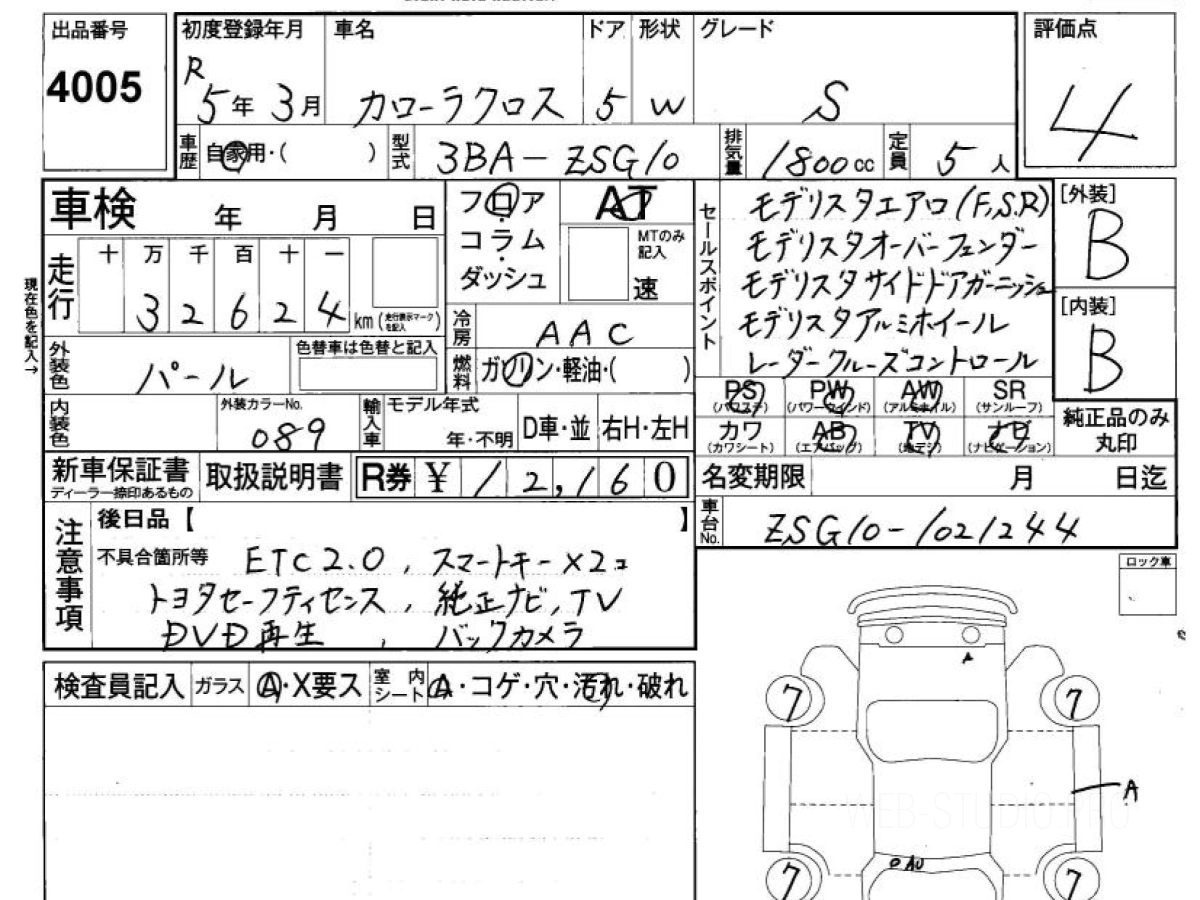 出品番号
4005
初度登録年月
R
5年 3月
車名
カローラクロス
ドア
5
形状
W
グレード
S
評価点
4
車歴
自家用・( )
型式
3BA-ZSG10
排気量
1800cc
定員
5人
車検
年 月 日
走行
十 万 千 百 十 一
3 2 6 2 4 km
(走行表示マークを記入)
現在色を記入→
外装色
パール
色替車は色替と記入
内装色
外装カラーNo.
089
輸入車
モデル年式
年・不明
D車・並
右H・左H
フロア
コラム
ダッシュ
AT
MTのみ記入
速
冷房
AAC
燃料
ガソリン・軽油・( )
セールスポイント
モデリスタエアロ(F,S,R)
モデリスタオーバーフェンダー
モデリスタサイドドアガーニッシュ
モデリスタアルミホイール
レーダークルーズコントロール
[外装]
B
[内装]
B
PS
(パワステ)
PW
(パワーウインド)
AW
(アルミホイル)
SR
(サンルーフ)
カワ
(カワシート)
AB
(エアバッグ)
TV
(地デジ)
ナビ
(ナビゲーション)
純正品のみ
丸印
新車保証書
ディーラー捺印あるもの
取扱説明書
R券 ¥ 12,160
名変期限
月 日迄
車台No.
ZSG10-1021244
注意事項
後日品【 】
不具合箇所等
ETC2.0, スマートキー×2コ
トヨタセーフティセンス, 純正ナビ,TV
DVD再生, バックカメラ
検査員記入
ガラス
A・X要ス
室内
シート
A・コゲ・穴・汚れ・破れ
ロック車
A
7
7
A
WEB-STUDIO.PRO
AU
7
7